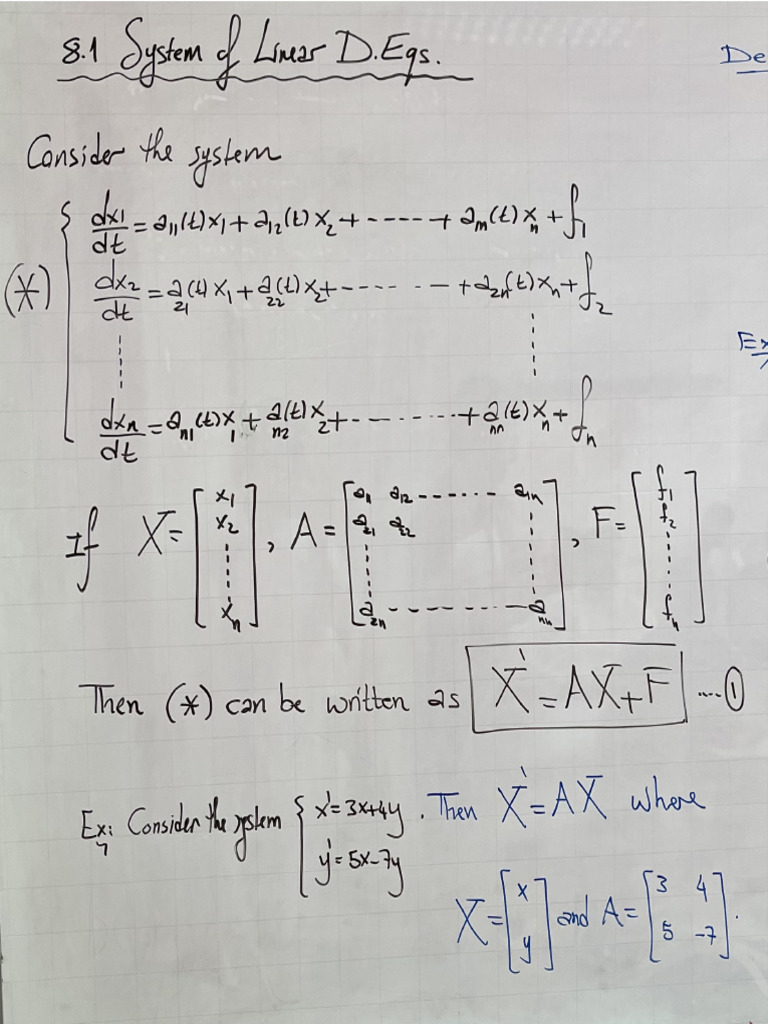 8.1 System of Linear D.Eqs.
De
Consider the system
(*) { dx1/dt = a11(t)x1 + a12(t)x2 + ----- + am(t)xn + f1
dx2/dt = a21(t)x1 + a22(t)x2 + ----- - + a2n(t)xn + f2
Ex
dxn/dt = an1(t)x1 + an2(t)x2 + ------- + ann(t)xn + fn
If X = [x1 x2 ⋮ xn], A = [a11 a12 ------ a1n a21 a22 ⋮ ⋮ a2n ------- ann], F = [f1 f2 ⋮ fn]
Then (*) can be written as X' = AX + F ....①
Ex: Consider the system { x' = 3x+4y y' = 5x-7y . Then X' = AX where
X = [x y] and A = [3 4 5 -7].